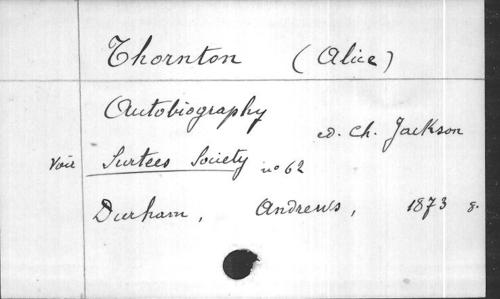 Thornton (Alice)
Autobiography
ed. Ch. Jackson
Voir Surtees Society no 62
Durham, Andrews, 1873 8.